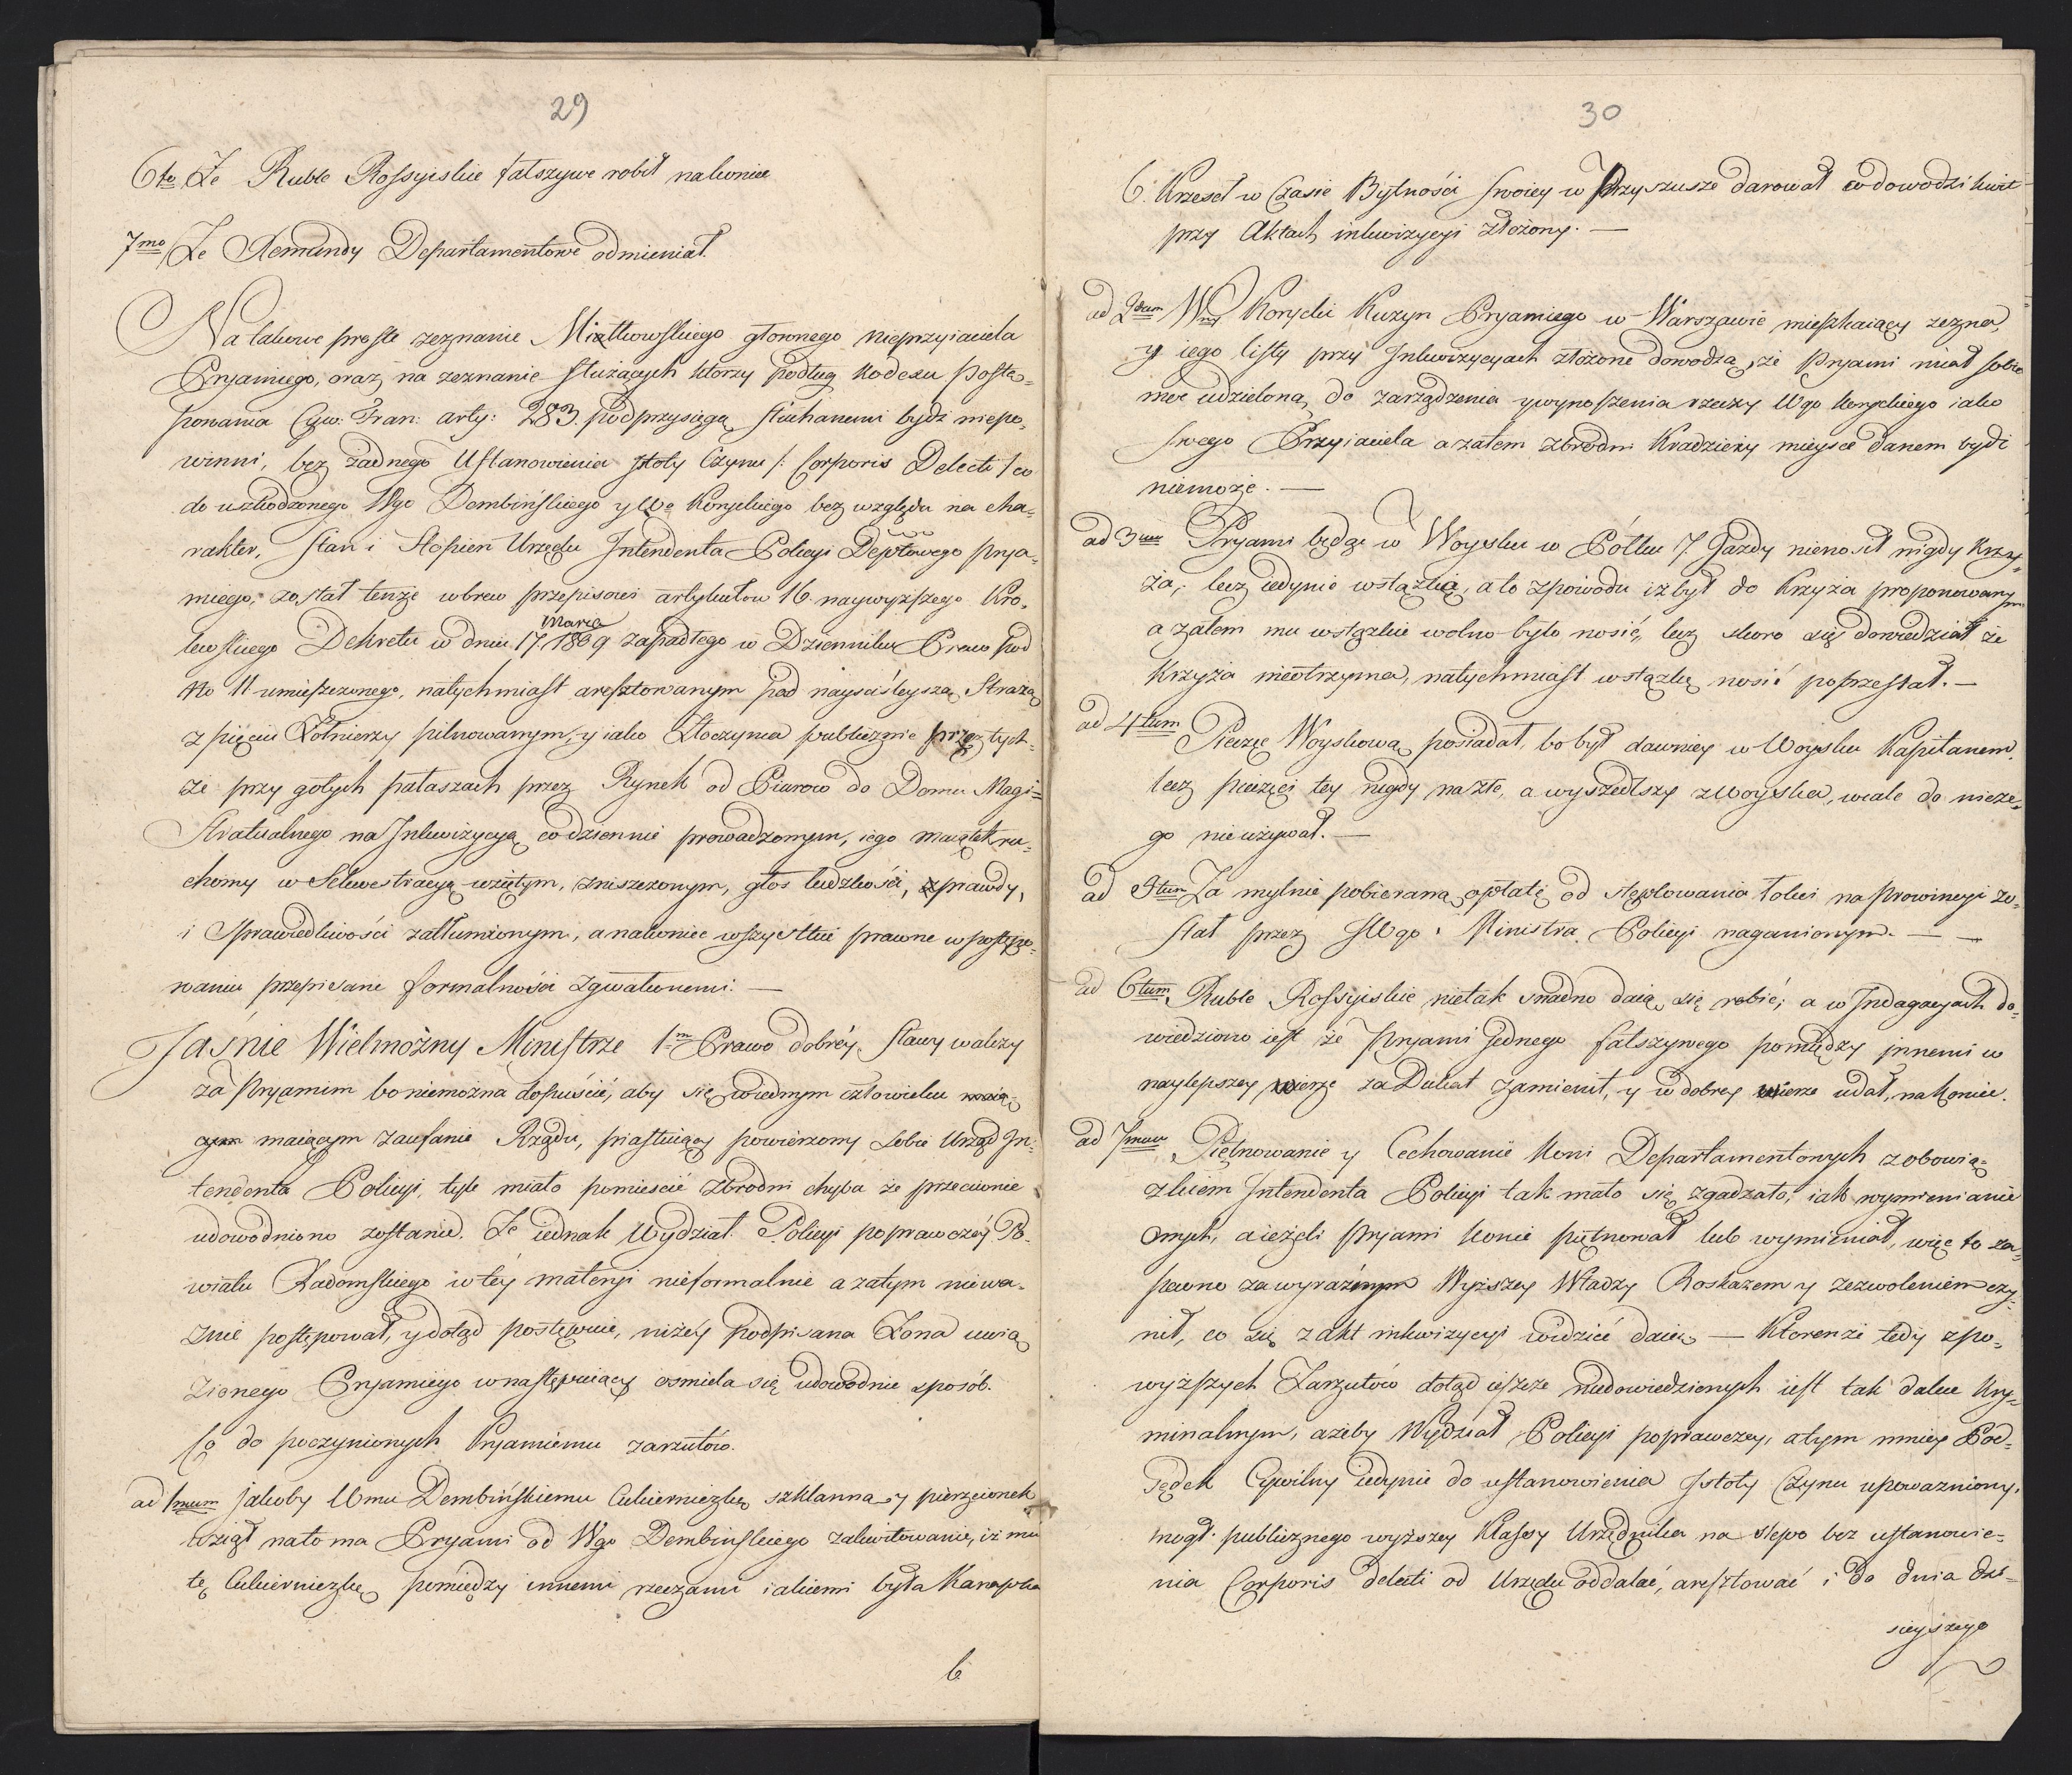 29
6to Że Ruble Rossyiskie fałszywe robił nakoniec
7mo Że Remundy Departamentowe odmieniał.
Na takowe proste zeznanie Miatkowskiego głownego nieprzyiaciela
Pryamiego, oraz na zeznanie służących ktorzy podług Kodexu postę=
powania Cyw: Fran: arty: 283. pod przysięgą słuchanemi bydź niepo=
winni, bez żadnego Ustanowienia Jstoty Czynu /: Corporis Delicti / co
do uszkodzonego Wgo Dembińskiego y Wo Koryckiego bez względu na cha=
rakter, stan i Stopien Urzędu Intendenta Policyi Depttowego Prya=
miego, został tenże wbrew przepisowi artykułow 16. naywyższego Kro=
Marca
lewskiego Dekretu w dniu 17. 1809 zapadłego w Dzienniku Praw pod
No 11 umieszczonego, natychmiast aresztowanym pod nayściśleyszą Strażą
z pięciu Żołnierzy pilnowanym, y iako Złoczyńca publicznie przez tych=
że przy gołych pałaszach przez Rynek od Piarow do Domu Magi=
stratualnego na Inkwizycyą codziennie prowadzonym, iego maiątek ru=
chomy w Sekwestracyą wziętym, zniszczonym, głos ludzkości, prawdy,
i Sprawiedliwości zatłumionym, a nakoniec wszystkie prawne w postępo=
waniu przepisane formalności zgwałconemi. —
Jaśnie Wielmożny Ministrze 1m Prawo dobréy Sławy walczy
za Pryamim bo niemożna dopuścić, aby się w iednym człowieku
maiącym zaufanie Rządu, piastuiący powierzony sobie Urząd In=
tendenta Policyi, tyle miało pomieścić zbrodni chyba że przeciwnie
udowodniono zostanie. Że iednak Wydział Policyi poprawczéy Po=
wiatu Radomskiego w téy materyi nieformalnie a zatym niewa=
żnie postępował, y dotąd postępuie, niżéy podpisana Żona uwię=
zionego Pryamiego w następuiący ośmiela się udowodnić sposób.
Co do poczynionych Pryamiemu zarzutów.
ad 1mum jakoby Wmu Dembińskiemu Cukierniczkę szklanną y pierzcionek
wziął na to ma Pryami od Wgo Dembińskiego zakwitowanie, iż mu
tę Cukierniczkę pomiędzy innemi rzeczami iakiemi była Kanapka
6.
30
6. Krzeseł w Czasie Bytności swoiey w Przysusze darował co dowodzi kwit
przy Aktach inkwizycyi złożony. —
ad 2dum Wny Korycki Kuzyn Pryamiego w Warszawie mieszkaiący zezna,
y iego listy przy Inkwizycyach złożone dowodzą, że Pryami miał sobie
moc udzieloną do zarządzenia y wynoszenia rzeczy Wgo Koryckiego iako
swego Przyiaciela a zatem zbrodni Kradzieży mieysce danem bydź
niemoże. —
ad 3um Pryami będąc w Woysku w Półku 7. Jazdy nienosił nigdy Krzy=
ża, lecz iedynie wstążkę, a to zpowodu iż był do Krzyża proponowanym
a zatem mu wstążkie wolno było nosić, lecz skoro się dowiedział że
Krzyża nieotrzyma, natychmiast wstążkę nosić poprzestał. —
ad 4tum Pieczęć Woyskową posiadał, bo był dawniey w Woysku Kapitanem,
lecz pieczęci tey nigdy na złe, a wyszedłszy z woyska, wcale do nicze=
go nie używał. —
ad 5tum Za mylnie pobieraną opłatę od stęplowania łokci na prowincyi zo=
stał przez JWgo Ministra Policyi naganionym. — —
ad 6tum Ruble Rossyiskie nietak snadno daią się robić, a w Indagacyach do=
wiedziono iest że Pryami jednego fałszywego pomiędzy innemi w
naylepszey wierze za Dukat zamienił, y w dobrey wierze udał, nakoniec.
ad 7mum Piętnowanie y Cechowanie Koni Departamentowych z obowią=
zkiem Intendenta Policyi tak mało się zgadzało, iak wymienianie
onych, a ieżeli Pryami konie piętnował lub wymieniał, więc to za=
pewno za wyraźnym Wyższey Władzy Roskazem y zezwoleniem czy=
nił, co się z akt inkwizycyi widzieć daie — Ktorenże tedy z po=
wyższych Zarzutów dotąd ieszcze niedowiedzionych iest tak dalece kry=
minalnym, ażeby Wydział Policyi poprawczey, a tym mniey Pod=
sędek Cywilny iedynie do ustanowienia Jstoty Czynu upoważniony,
mogł publicznego wyższey Klassy Urzędnika na ślepo bez ustanowie=
nia Corporis delicti od Urzędu oddalać, aresztować i do dnia dzi=
sieyszego